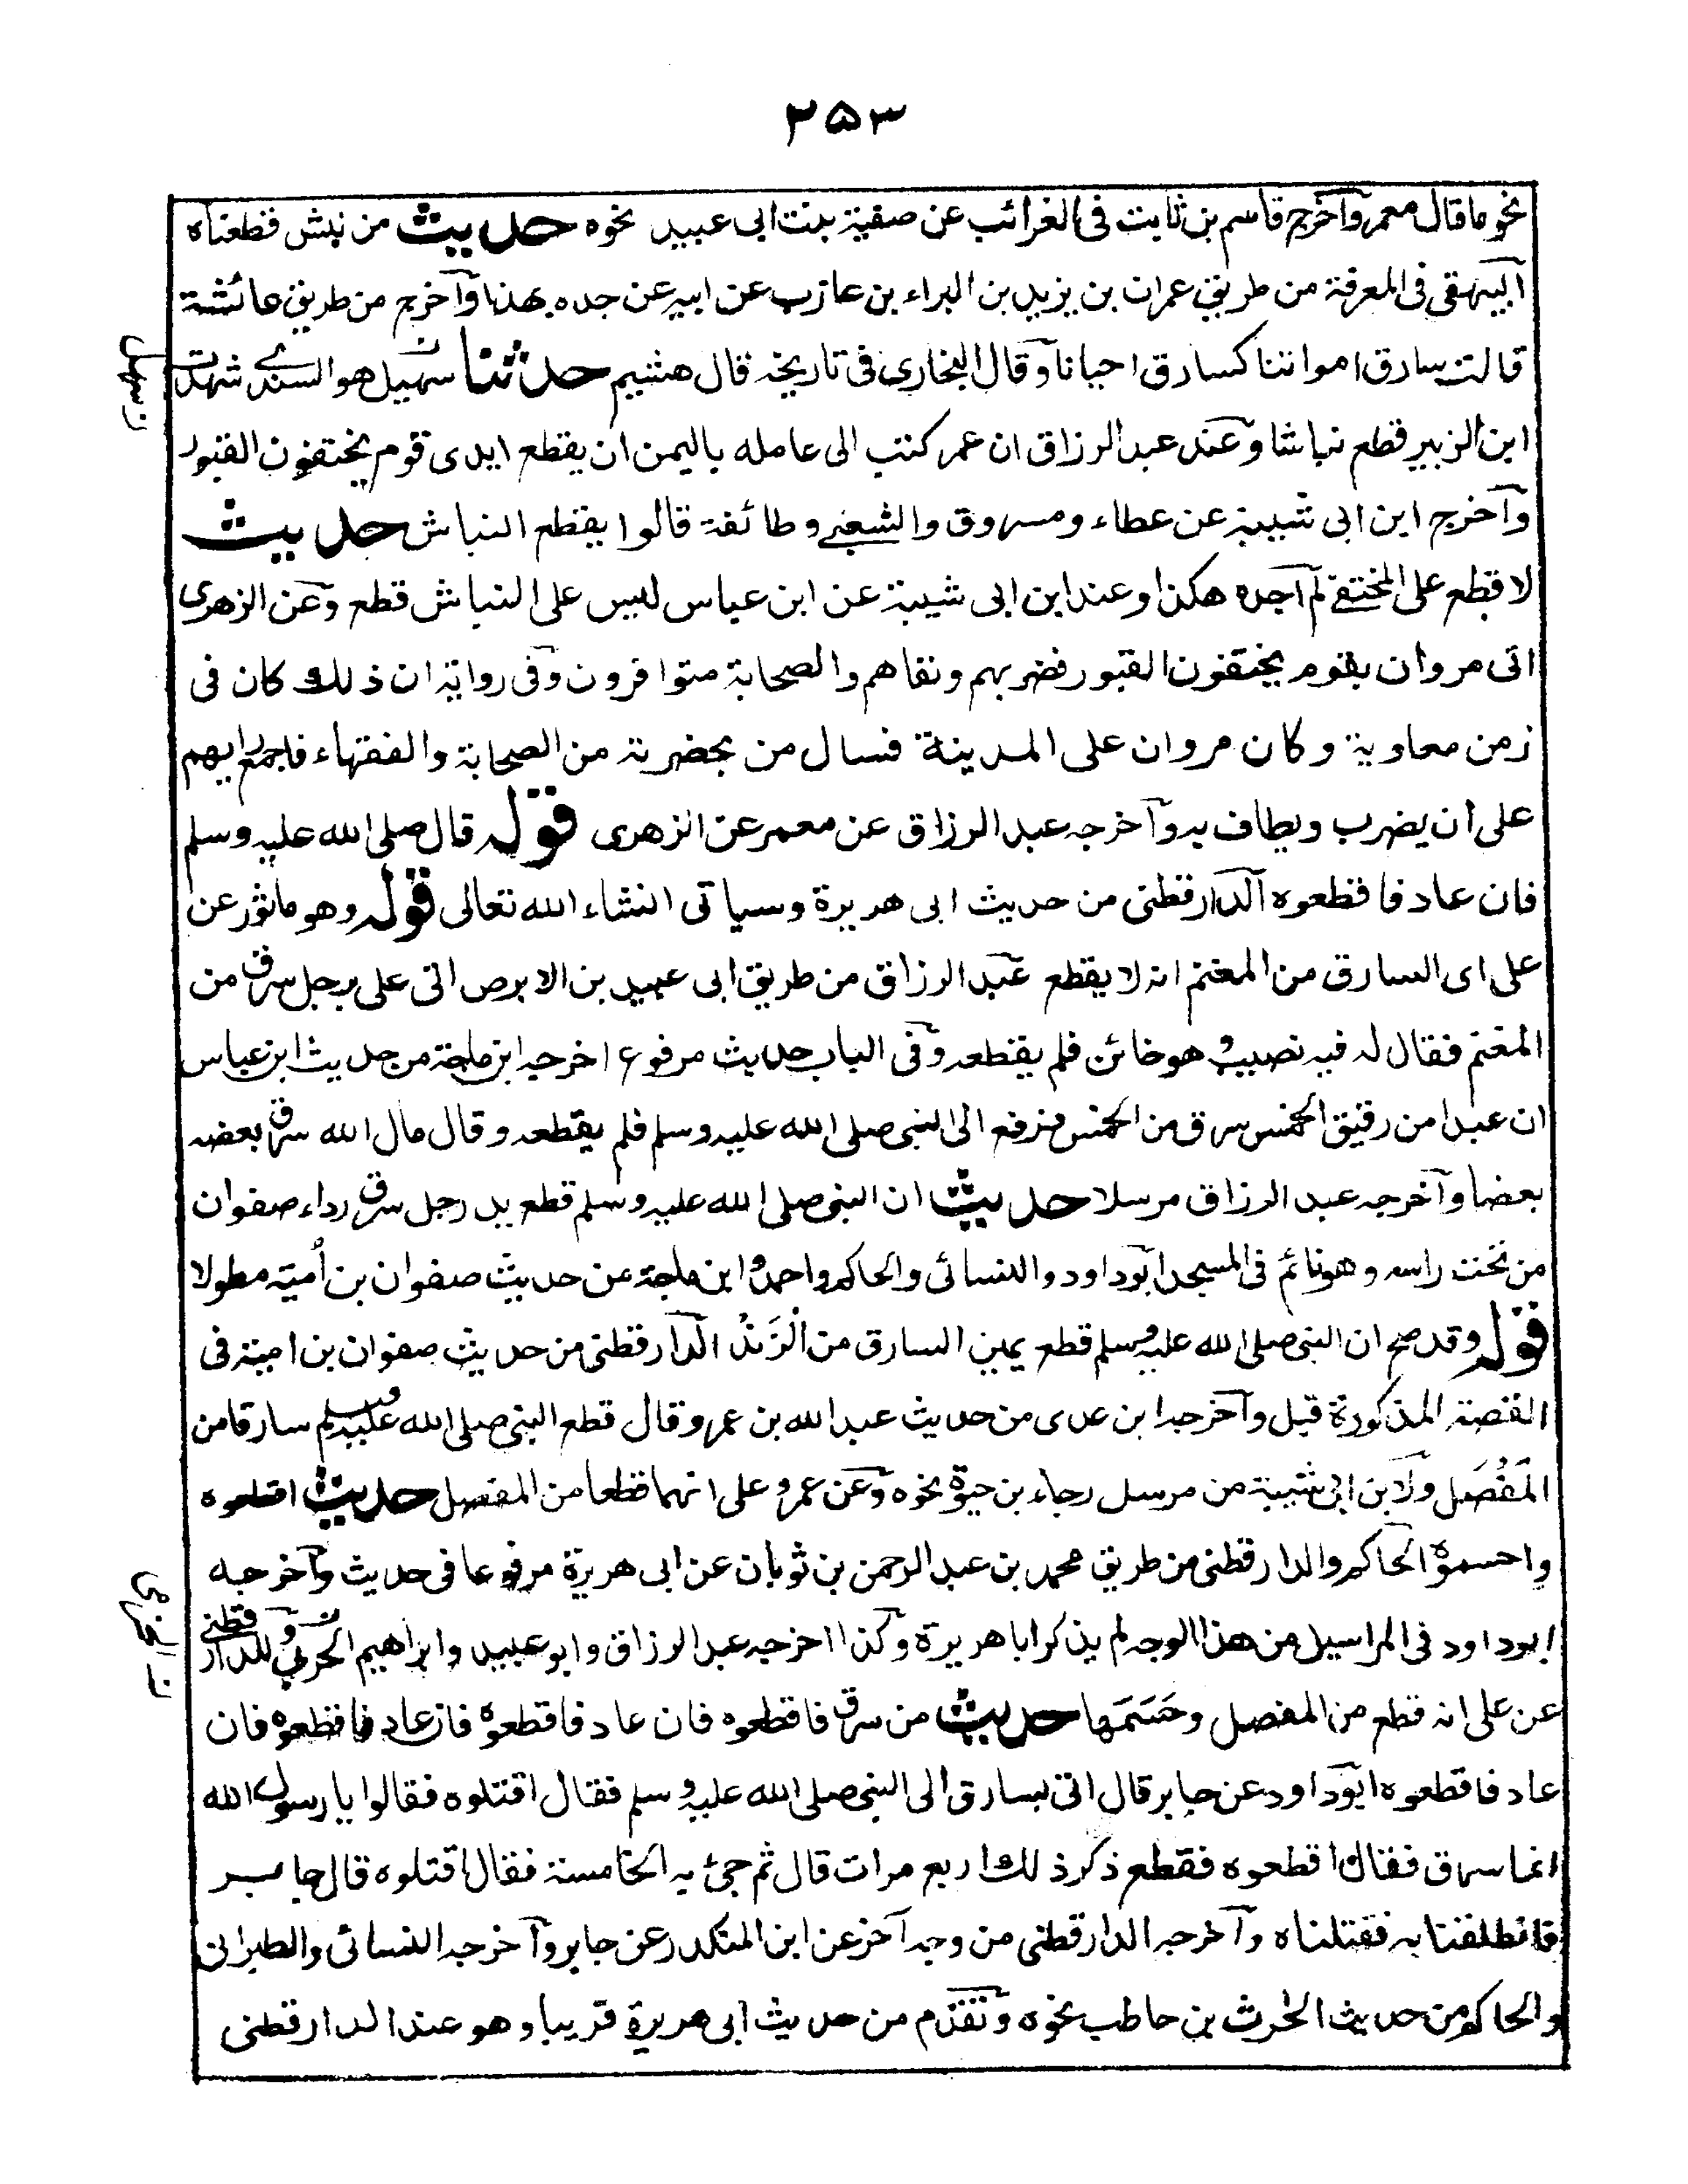 ۲۵۳
نحو ما قال معمر وآخرج قاسم بن ثابت فی الغرائب عن صفیة بنت ابی عبید نحوه حدیث من نبش قطعناه
آلبیهقی فی المعرفة من طریق عمران بن یزید بن البراء بن عازب عن ابیه عن جده بهذا وآخرج من طریق عائشة
قالت سارق امواتنا کسارق احیانا وقال البخاری فی تاریخه قال هشیم حدثنا سهیل هو السندے شهدت
ن سهل
ابن الزبیر قطع نباشا وعند عبد الرزاق ان عمر کتب الی عامله بالیمن ان یقطع ایدی قوم یختفون القبور
وآخرج ابن ابی شیبة عن عطاء ومسروق والشعبے وطائفة قالوا یقطع النباش حدیث
لا قطع علی المختفے لم آجده هکذا وعند ابن ابی شیبة عن ابن عباس لیس علی النباش قطع وعن الزهری
اتی مروان بقوم یختفون القبور فضربهم ونفاهم والصحابة متوافرون وفی روایة ان ذلك کان فی
زمن معاویة وکان مروان علی المدینة فسال من بحضرته من الصحابة والفقهاء فاجمع رایهم
علی ان یضرب ویطاف به وآخرجه عبد الرزاق عن معمر عن الزهری قوله قال صلی الله علیه وسلم
فان عاد فاقطعوه آلدارقطنی من حدیث ابی هریرة وسیاتی انشاء الله تعالی قوله وهو ماثور عن
علی ای السارق من المغنم انه لا یقطع عبد الرزاق من طریق ابی عبید بن الابرص اتی علی برجل سرق من
المغنم فقال له فیه نصیب وهو خائن فلم یقطعه وفی الباب حدیث مرفوع اخرجه ابن ماجة من حدیث ابن عباس
ان عبدا من رقیق الخمس سرق من الخمس فرفع الی النبی صلی الله علیه وسلم فلم یقطعه وقال مال الله سرق بعضه
بعضا وآخرجه عبد الرزاق مرسلا حدیث ان النبی صلی الله علیه وسلم قطع ید رجل سرق رداء صفوان
من تحت راسه وهو نائم فی المسجد آبوداود والنسائی والحاکم واحمد وابن ماجة عن حدیث صفوان بن اُمیّة مطولا
قوله وقد صح ان النبی صلی الله علیه وسلم قطع یمین السارق من الزَنْدُ الدارقطنی من حدیث صفوان بن امیة فی
القصة المذکورة قبل وآخرجه ابن عدی من حدیث عبد الله بن عمرو قال قطع النبی صلی الله علیه وسلم سارقا من
المَفْصَل ولابن ابی شیبة من مرسل رجاء بن حیوة نحوه وعن عمر وعلی انهما قطعا من المفصل حدیث اقطعوه
واحسموه الحاکم والدارقطنی من طریق محمد بن عبد الرحمن بن ثوبان عن ابی هریرة مرفوعا فی حدیث وآخرجه
ابوداود فی المراسیل من هذا الوجه لم یذکر ابا هریرة وکذا اخرجه عبد الرزاق وابو عبید وابراهیم الحربی وللدارقطنے
ن الجزری
عن علی انه قطع من المفصل وحَسَمَها حدیث من سرق فاقطعوه فان عاد فاقطعوه فان عاد فاقطعوه فان
عاد فاقطعوه آبوداود عن جابر قال اتی بسارق الی النبی صلی الله علیه وسلم فقال اقتلوه فقالوا یا رسول الله
انما سرق فقال اقطعوه فقطع ذکر ذلك اربع مرات قال ثم جئ به الخامسة فقال اقتلوه قال جابر
فانطلقنا به فقتلناه وآخرجه الدارقطنی من وجه آخر عن ابن المنکدر عن جابر وآخرجه النسائی والطبرانی
والحاکم من حدیث الحٰرث بن حاطب نحوه وتقدم من حدیث ابی هریرة قریبا وهو عند الدارقطنی